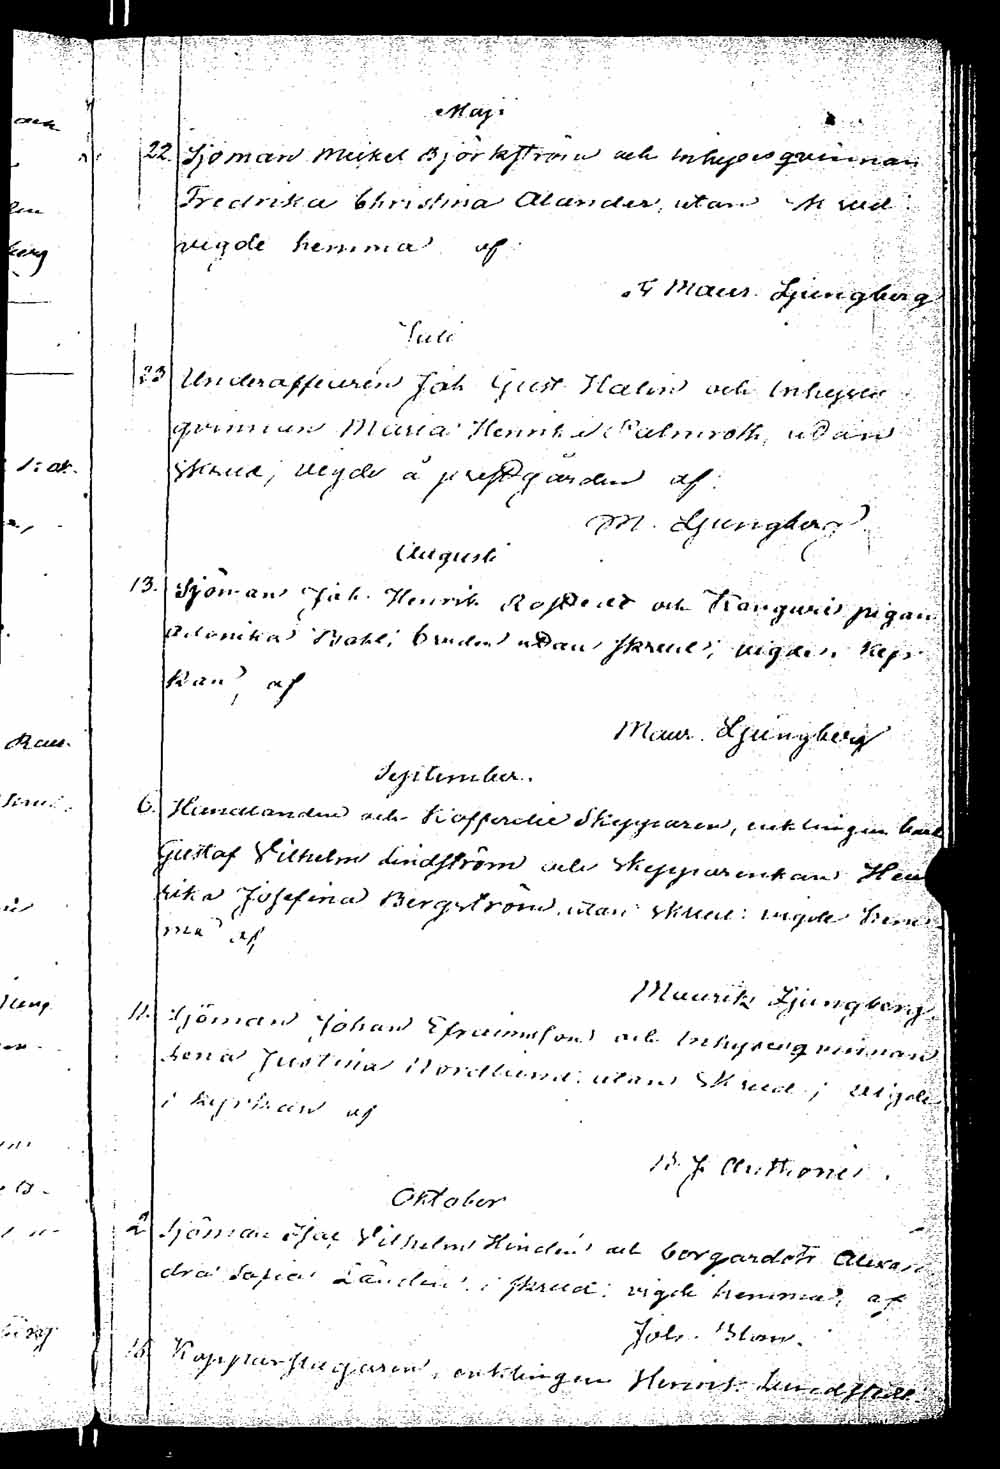 Maji
22. Sjöman Mickel Björkström och inhysesqvinnan
Fredrika Christina Alander, utan skrud
vigde hemma af
F Maur. Ljungberg
Juli
23 Underofficeren Joh Gust Halin och Inhyses
qvinnan Maria Henrika Palmroth, utan
skrud; vigde å prestgården af
M. Ljungberg
Augusti
13. Sjöman Joh. Henrik och pigan
Bruden utan skrud; vigde i kyr
kan, af
Maur. Ljungberg
September.
6. Handlanden och Kofferdie Skepparen, enklingen
Gustaf Vilhelm Lindström och skepparenkan Hen
rika Josefina Bergström, utan skrud; vigde hem
ma af,
Maurik Ljungberg.
11. Sjöman Johan Efraimsson och Inhysesqvinnan
Lena Justina Nordlund; utan skrud; vigde
i kyrkan af
B. J. Anthoni.
Oktober
2 Sjöman Vilhelm Hindén och borgardotr Alexan
dra Sofia i skrud; vigde hemma, af
Joh. Blom.
16. Kopparslagaren, enklingen Henrik
och
berg
Kak.